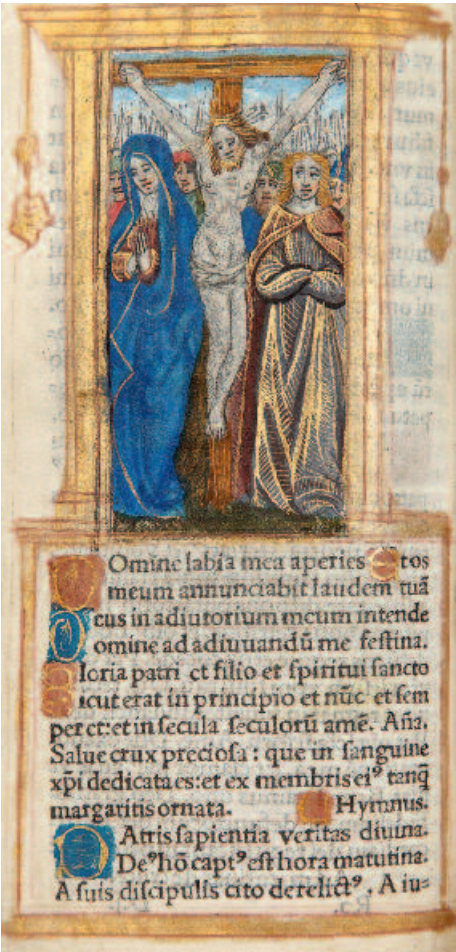 Domine labia mea aperies Et os
meum annunciabit laudem tuā
Deus in adiutorium meum intende
Domine ad adiuuandū me festina.
Gloria patri et filio et spiritui sancto
Sicut erat in principio et nūc et sem
per et: et in secula seculorū amē. Aña.
Salue crux preciosa: que in sanguine
xp̄i dedicata es: et ex membris eiꝰ tanq̄
margaritis ornata. Hymnus.
PAtris sapientia veritas diuina.
Deꝰ hō captꝰ est hora matutina.
A suis discipulis cito derelictꝰ. A iu=